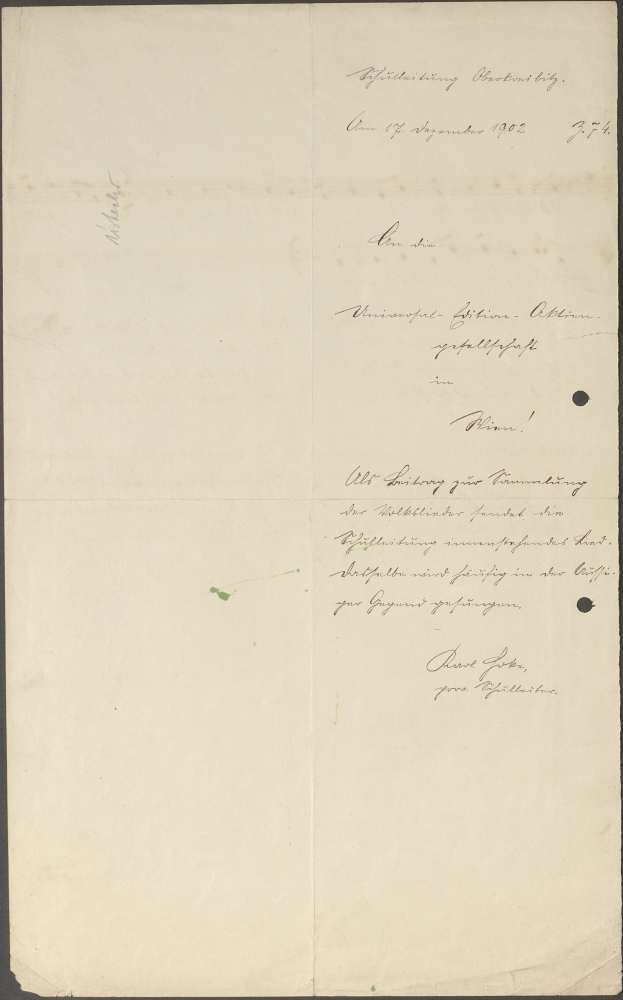 Schulleitung Oberkreibitz.
Am 17. Dezember 1902 Z. 74.
An die
Universal-Edition-Aktien-
gesellschaft
in
Wien!
Als Beitrag zur Sammlung
der Volkslieder sendet die
Schulleitung innenstehendes Lied.
Dasselbe wird häufig in der Aussi-
ger Gegend gesungen.
Karl
prov. Schulleiter.